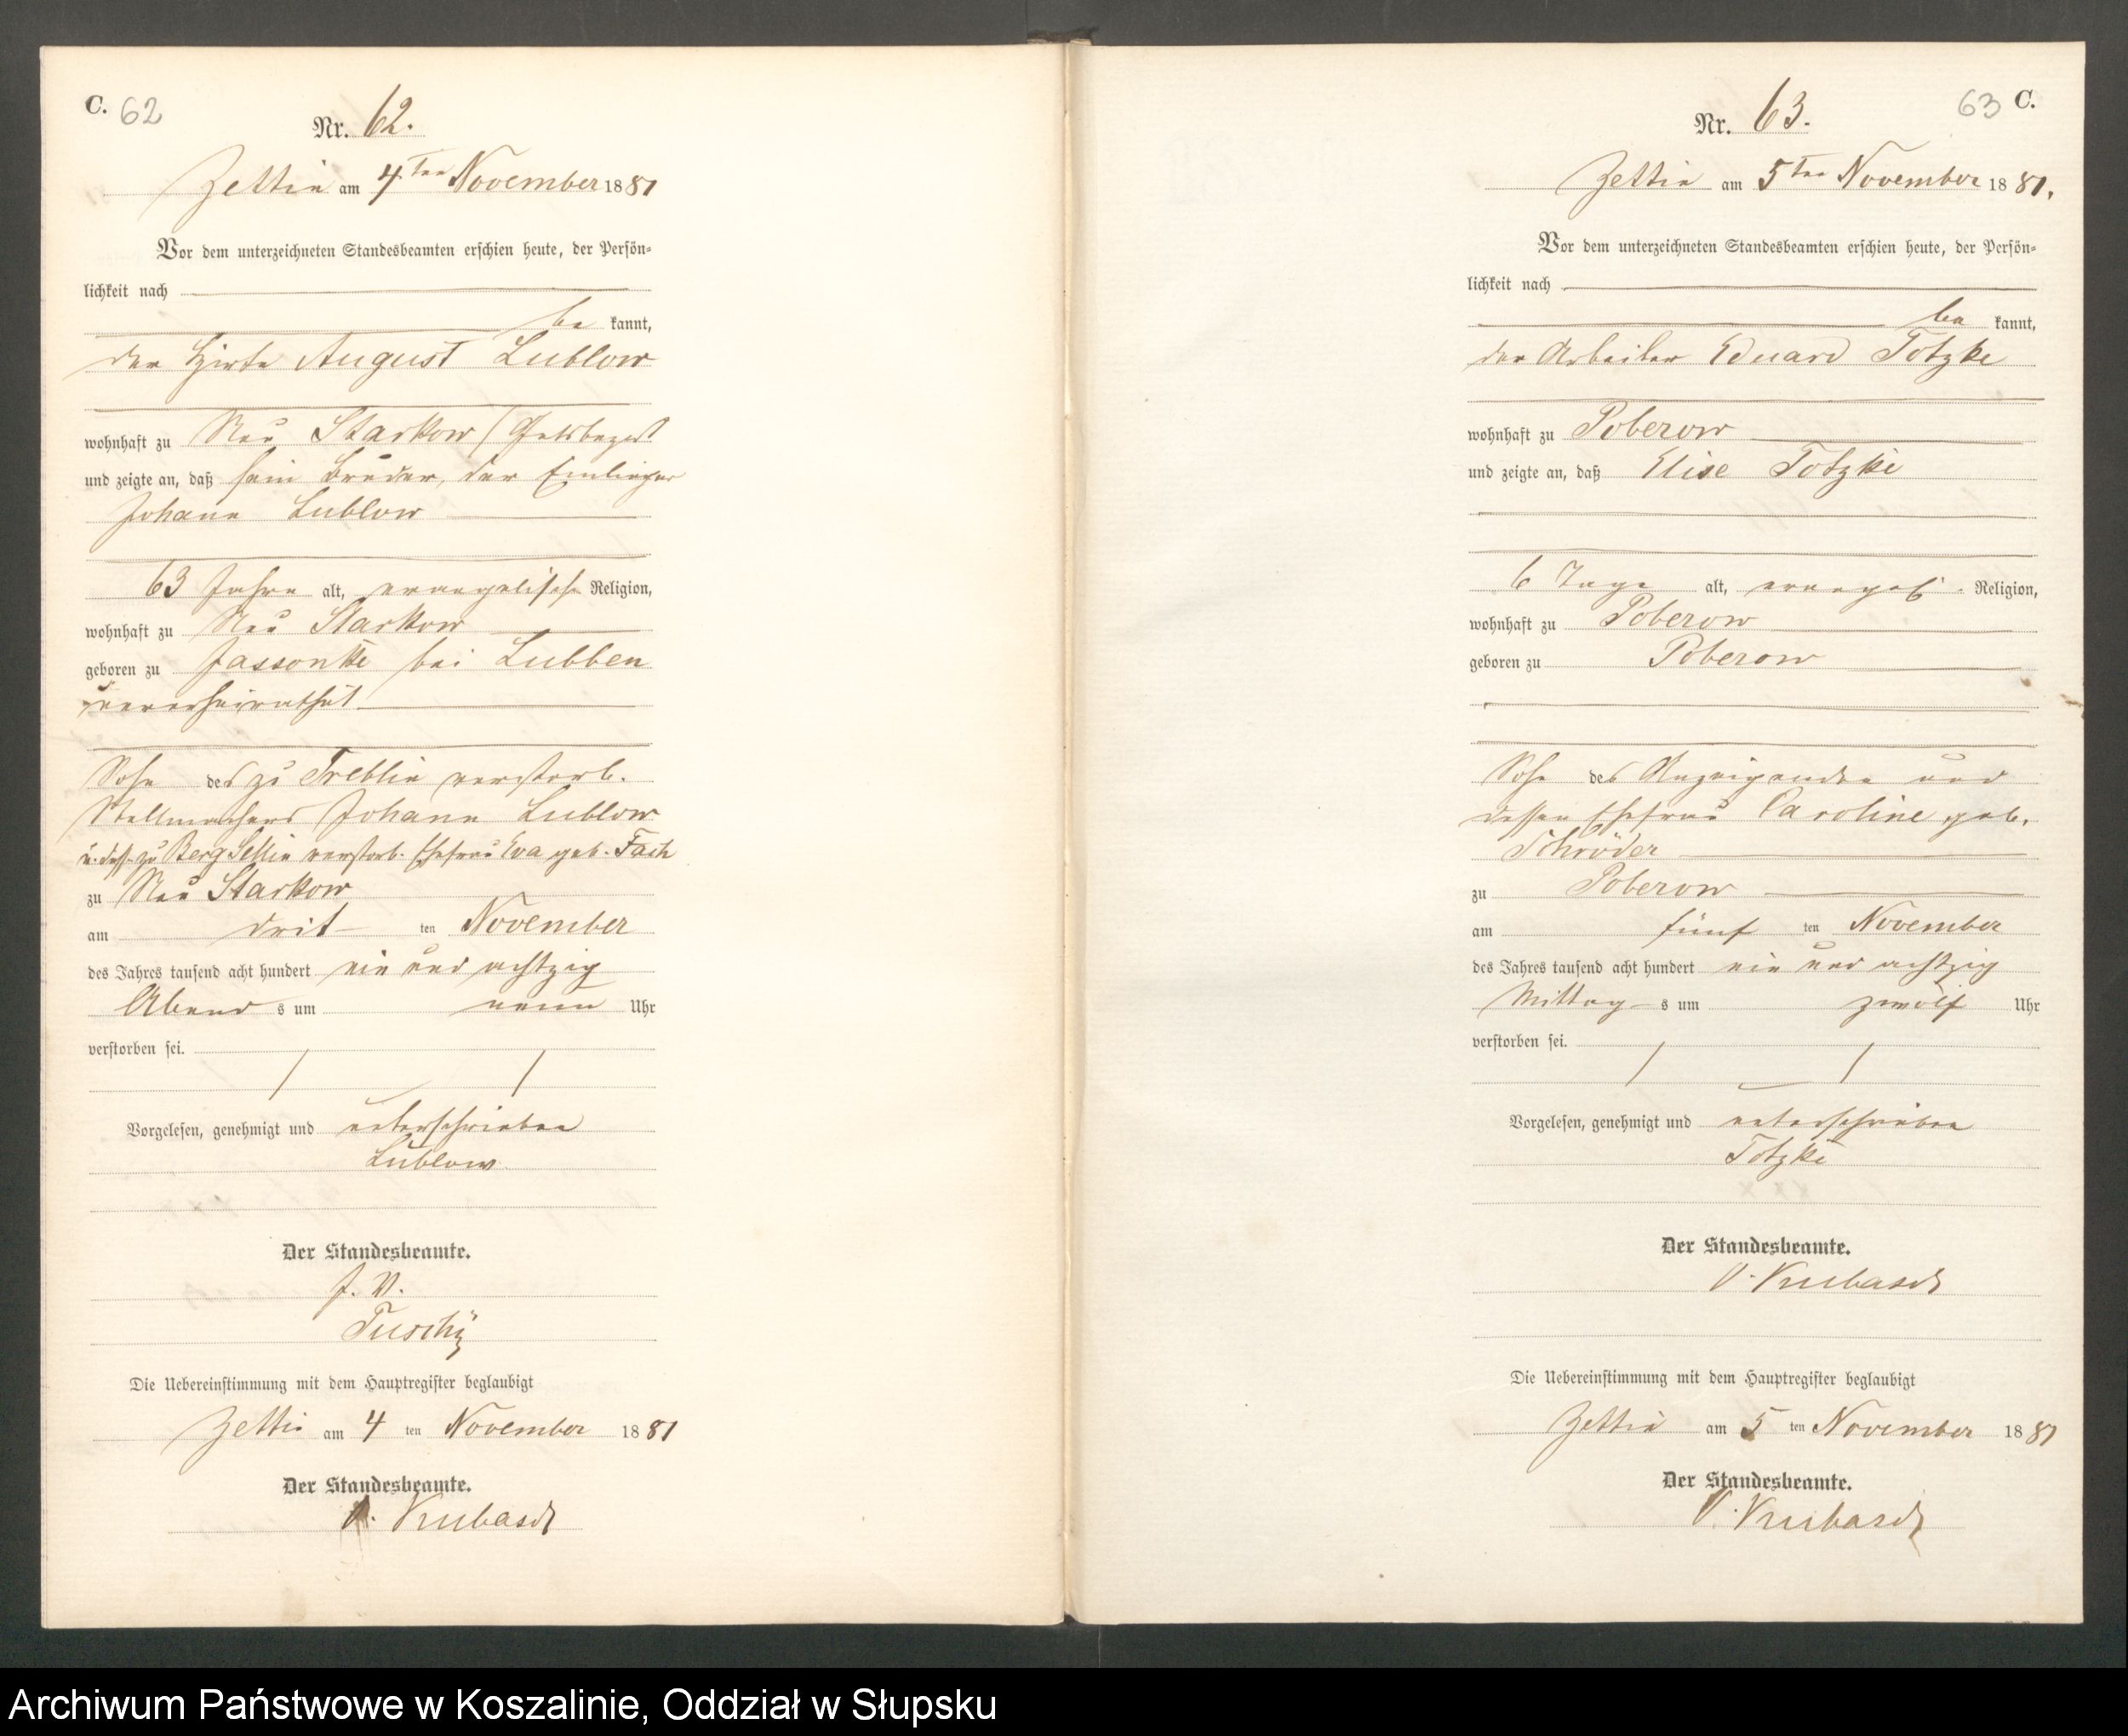 C. 62
Nr. 62.
Zettin am 4ten November 1881
Vor dem unterzeichneten Standesbeamten erschien heute, der Persön-
lichkeit nach
be kannt,
der Hirte August Lublow
wohnhaft zu Neu Starkow / Gutsbezirk
und zeigte an, daß sein Bruder, der Einlieger
Johann Lublow
63 Jahre alt, evangelischer Religion,
wohnhaft zu Neu Starkow
geboren zu Jassonke bei Lubben
unverheirathet
Sohn des zu Treblin verstorb.
Stellmachers Johann Lublow
u. dess. zu Berg Sellin verstorb. Ehefrau Eva geb. Fach
zu Neu Starkow
am drit ten November
des Jahres tausend acht hundert ein und achtzig
Abend s um neun Uhr
verstorben sei.
Vorgelesen, genehmigt und unterschrieben
Lublow
Der Standesbeamte.
J. V.
Die Uebereinstimmung mit dem Hauptregister beglaubigt
Zettin am 4 ten November 1881
Der Standesbeamte.
63 C.
Nr. 63.
Zettin am 5ten November 1881.
Vor dem unterzeichneten Standesbeamten erschien heute, der Persön-
lichkeit nach
be kannt,
der Arbeiter Eduard Totzke
wohnhaft zu Poberow
und zeigte an, daß Elise Totzke
6 Tage alt, evangel. Religion,
wohnhaft zu Poberow
geboren zu Poberow
Sohn des Anzeigenden und
dessen Ehefrau Caroline geb.
Schröder
zu Poberow
am fünf ten November
des Jahres tausend acht hundert ein und achtzig
Mittag s um zwölf Uhr
verstorben sei.
Vorgelesen, genehmigt und unterschrieben
Totzke
Der Standesbeamte.
Die Uebereinstimmung mit dem Hauptregister beglaubigt
Zettin am 5 ten November 1881
Der Standesbeamte.
Archiwum Państwowe w Koszalinie, Oddział w Słupsku